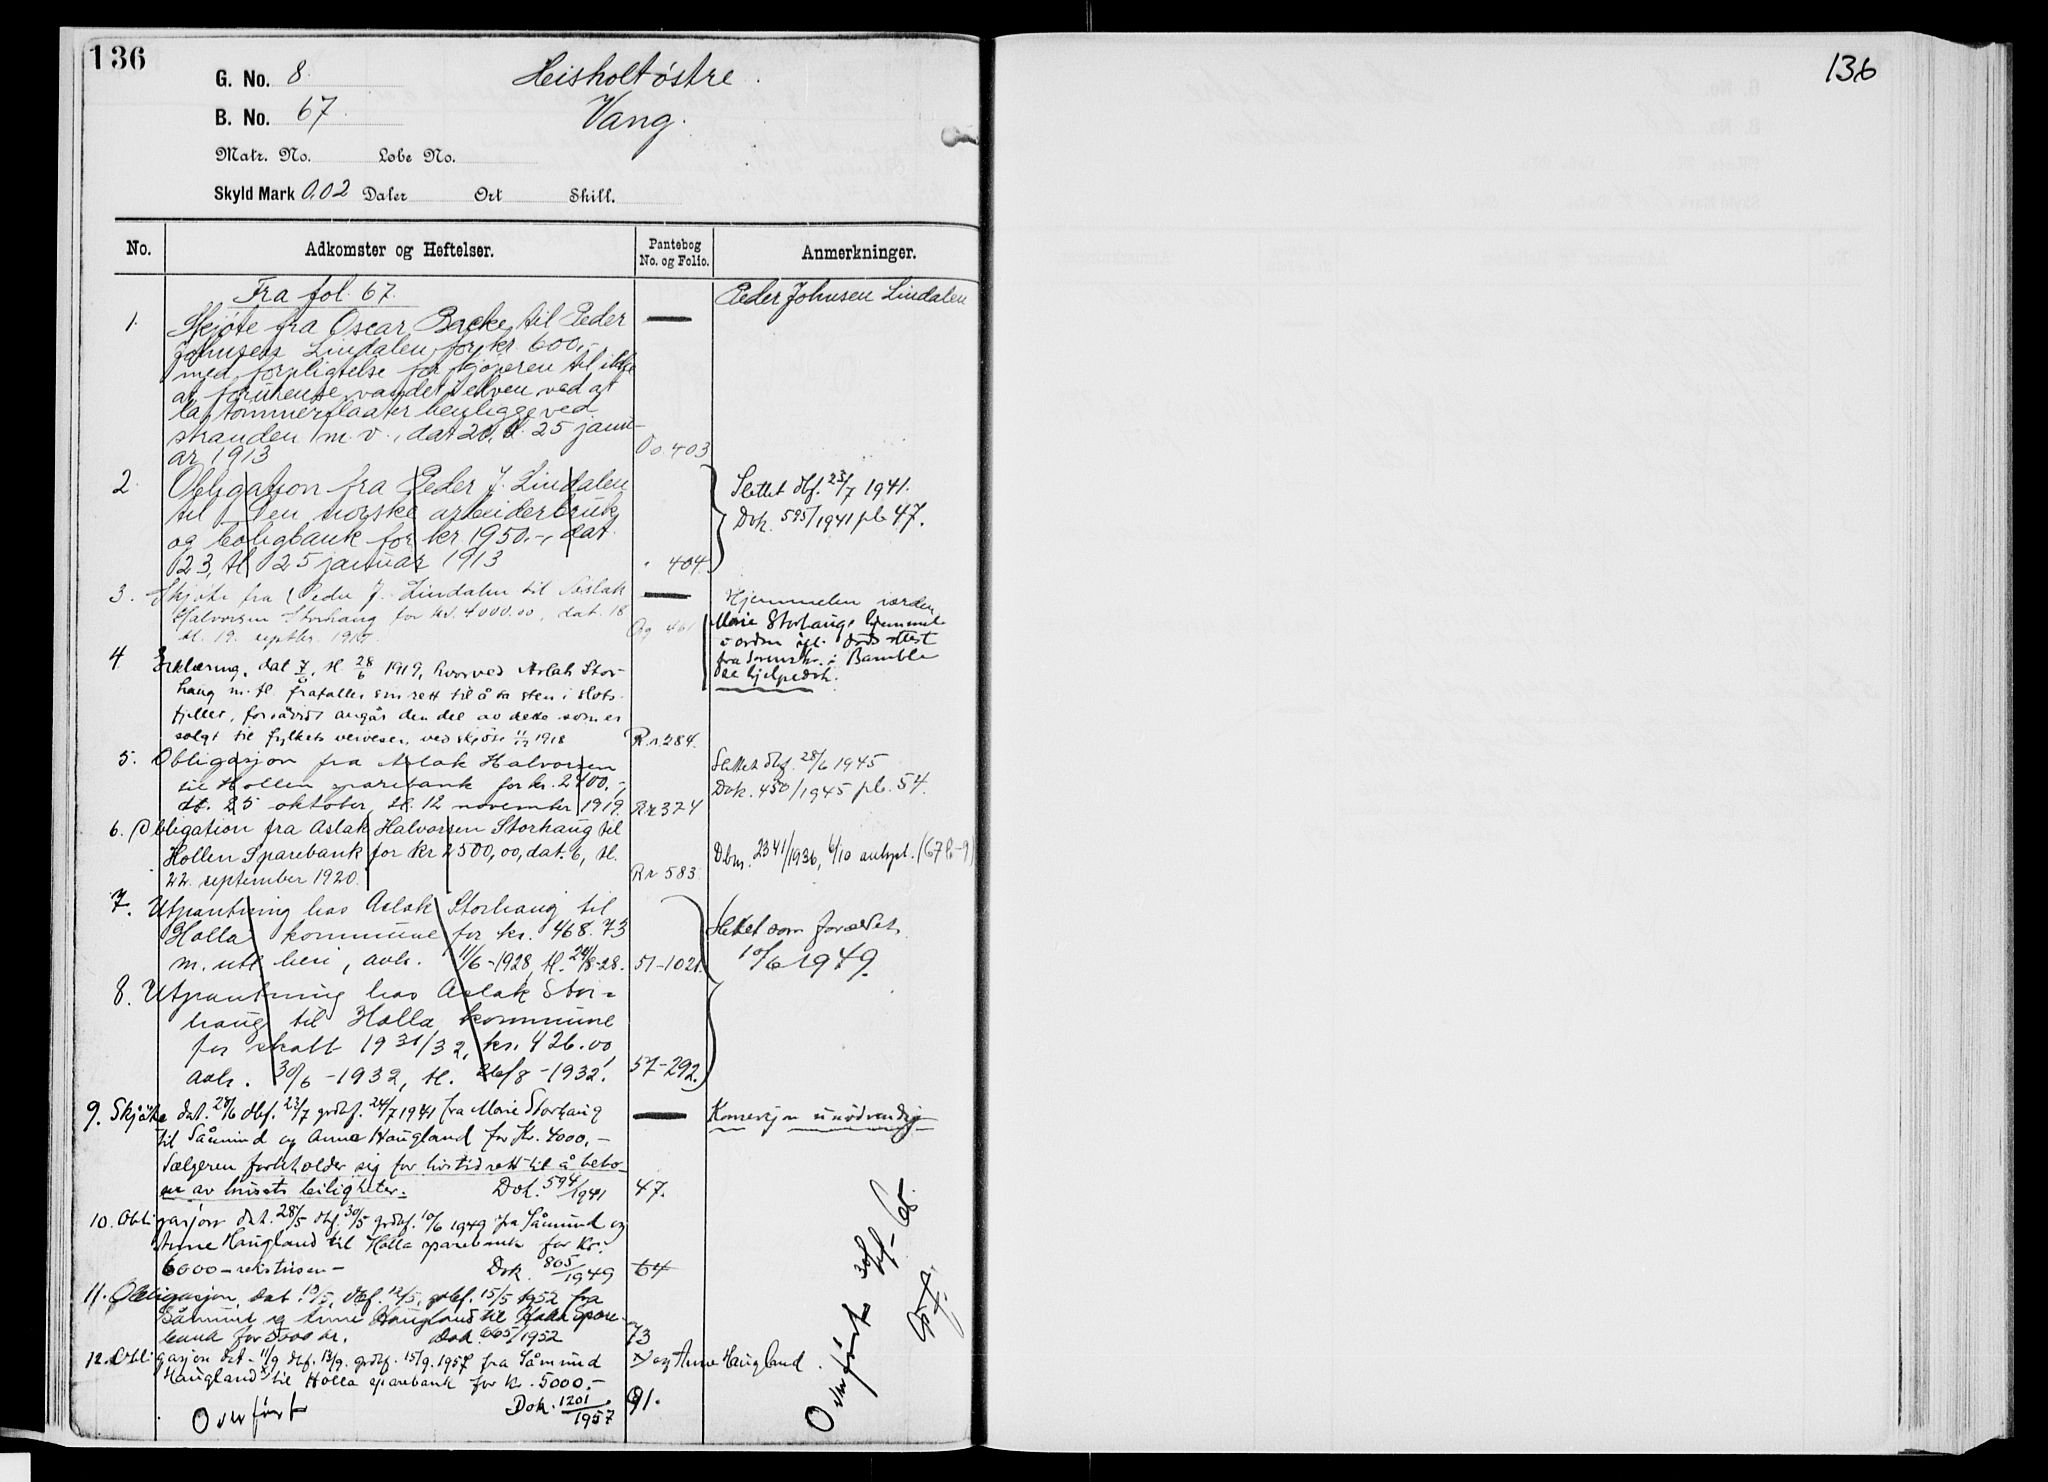 136
G. No. 8. Heisholt østre.
B. No. 67. Vang.
Matr. No. Løbe No.
Skyld Mark 0,02 Daler Ort Skill.
No. Adkomster og Heftelser. Pantebog No. og Folio. Anmerkninger.
Fra fol. 67. Peder Johnsen Lindalen
1. Skjøte fra Oscar Backe til Peder —
Johnsen Lindalen for kr. 600,-
med forpligtelse for kjøperen til ikke
at forurense vandet i elven ved at
la tømmerflaater henligge ved
stranden m.v., dat 20, tl. 25 janu-
ar 1913 Oo. 403
2 Obligation fra Peder J. Lindalen Slettet dbf. 23/7 1941.
til Den norske arbeiderbruk Dok. 595/1941 pb 47.
og boligbank for kr 1950.-, dat.
23, tl. 25 januar 1913 " 404.
3. Skjøte fra Peder J. Lindalen til Aslak — Hjemmelen i orden
Halvorsen Storhaug for kr. 4000.00, dat. 18 Marie Storhaugs hjemmel
tl. 19. septbr. Qq 461 i orden jfr. dødsattest
fra Sorenskr. i Bamble
se hjelpedok.
4 Erklæring, dat 7/6, tl. 28/6 1919, hvorved Aslak Stor-
haug m. fl. frafaller sin rett til å ta sten i Slots-
fjellet, forsåvidt angår den del av dette som er
solgt til fylkets veivesen ved skjøte 11/12 1918 R.r. 284.
5. Obligasjon fra Aslak Halvorsen Slettet dbf. 28/6 1945
til Hollen sparebank for kr. 2400,-, Dok. 450/1945 pb. 54.
dt. 25 oktober, tl. 12 november 1919. Rr 374
6. Obligation fra Aslak Halvorsen Storhaug til
Hollen Sparebank for kr 2500,00, dat. 6, tl. Dbnr. 2341/1936, 6/10
22. september 1920. Rr 583.
7. Utpantning hos Aslak Storhaug til
Holla kommune for kr. 468.73 Slettet som foreldet
m. utl. heri, avh. 11/6-1928, tl. 20/8-28. 51-1021. 10/6 1949.
8. Utpantning hos Aslak Stor-
haug til Holla kommune
for skatt 1931/32, kr. 426.00
avh. 30/6-1932, tl. 26/8-1932. 57-292.
9. Skjøte dat. 28/6 dbf. 23/7 grdbf. 24/7 1941 fra Marie Storhaug — Konsesjon unødvendig
til Såmund og Anne Haugland for Kr. 4000,-
Selgeren forbeholder sig for livstid rett til å bebo
en av husets leiligheter. Dok. 594/1941 47.
10. Obligasjon dat. 28/5 dbf. 30/5 grdbf. 10/6 1949 fra Såmund og
Anne Haugland til Holla sparebank for Kr.
6000 – Dok. 805/1949 64
11. Obligasjon, dat. 10/5, dbf. 12/5, grdbf. 15/5 1952 fra
Såmund og Anne Haugland til Holla Spare-
bank for 5000 kr. Dok. 665/1952 73
12. Obligasjon dat. 11/9 dbf. 13/9. grdbf. 15/9. 1957 fra Såmund x) og Anne Haugland.
Haugland x) til Holla sparebank for kr. 5000,-
Dok. 1201/1957 91.
Overført
Overført
136